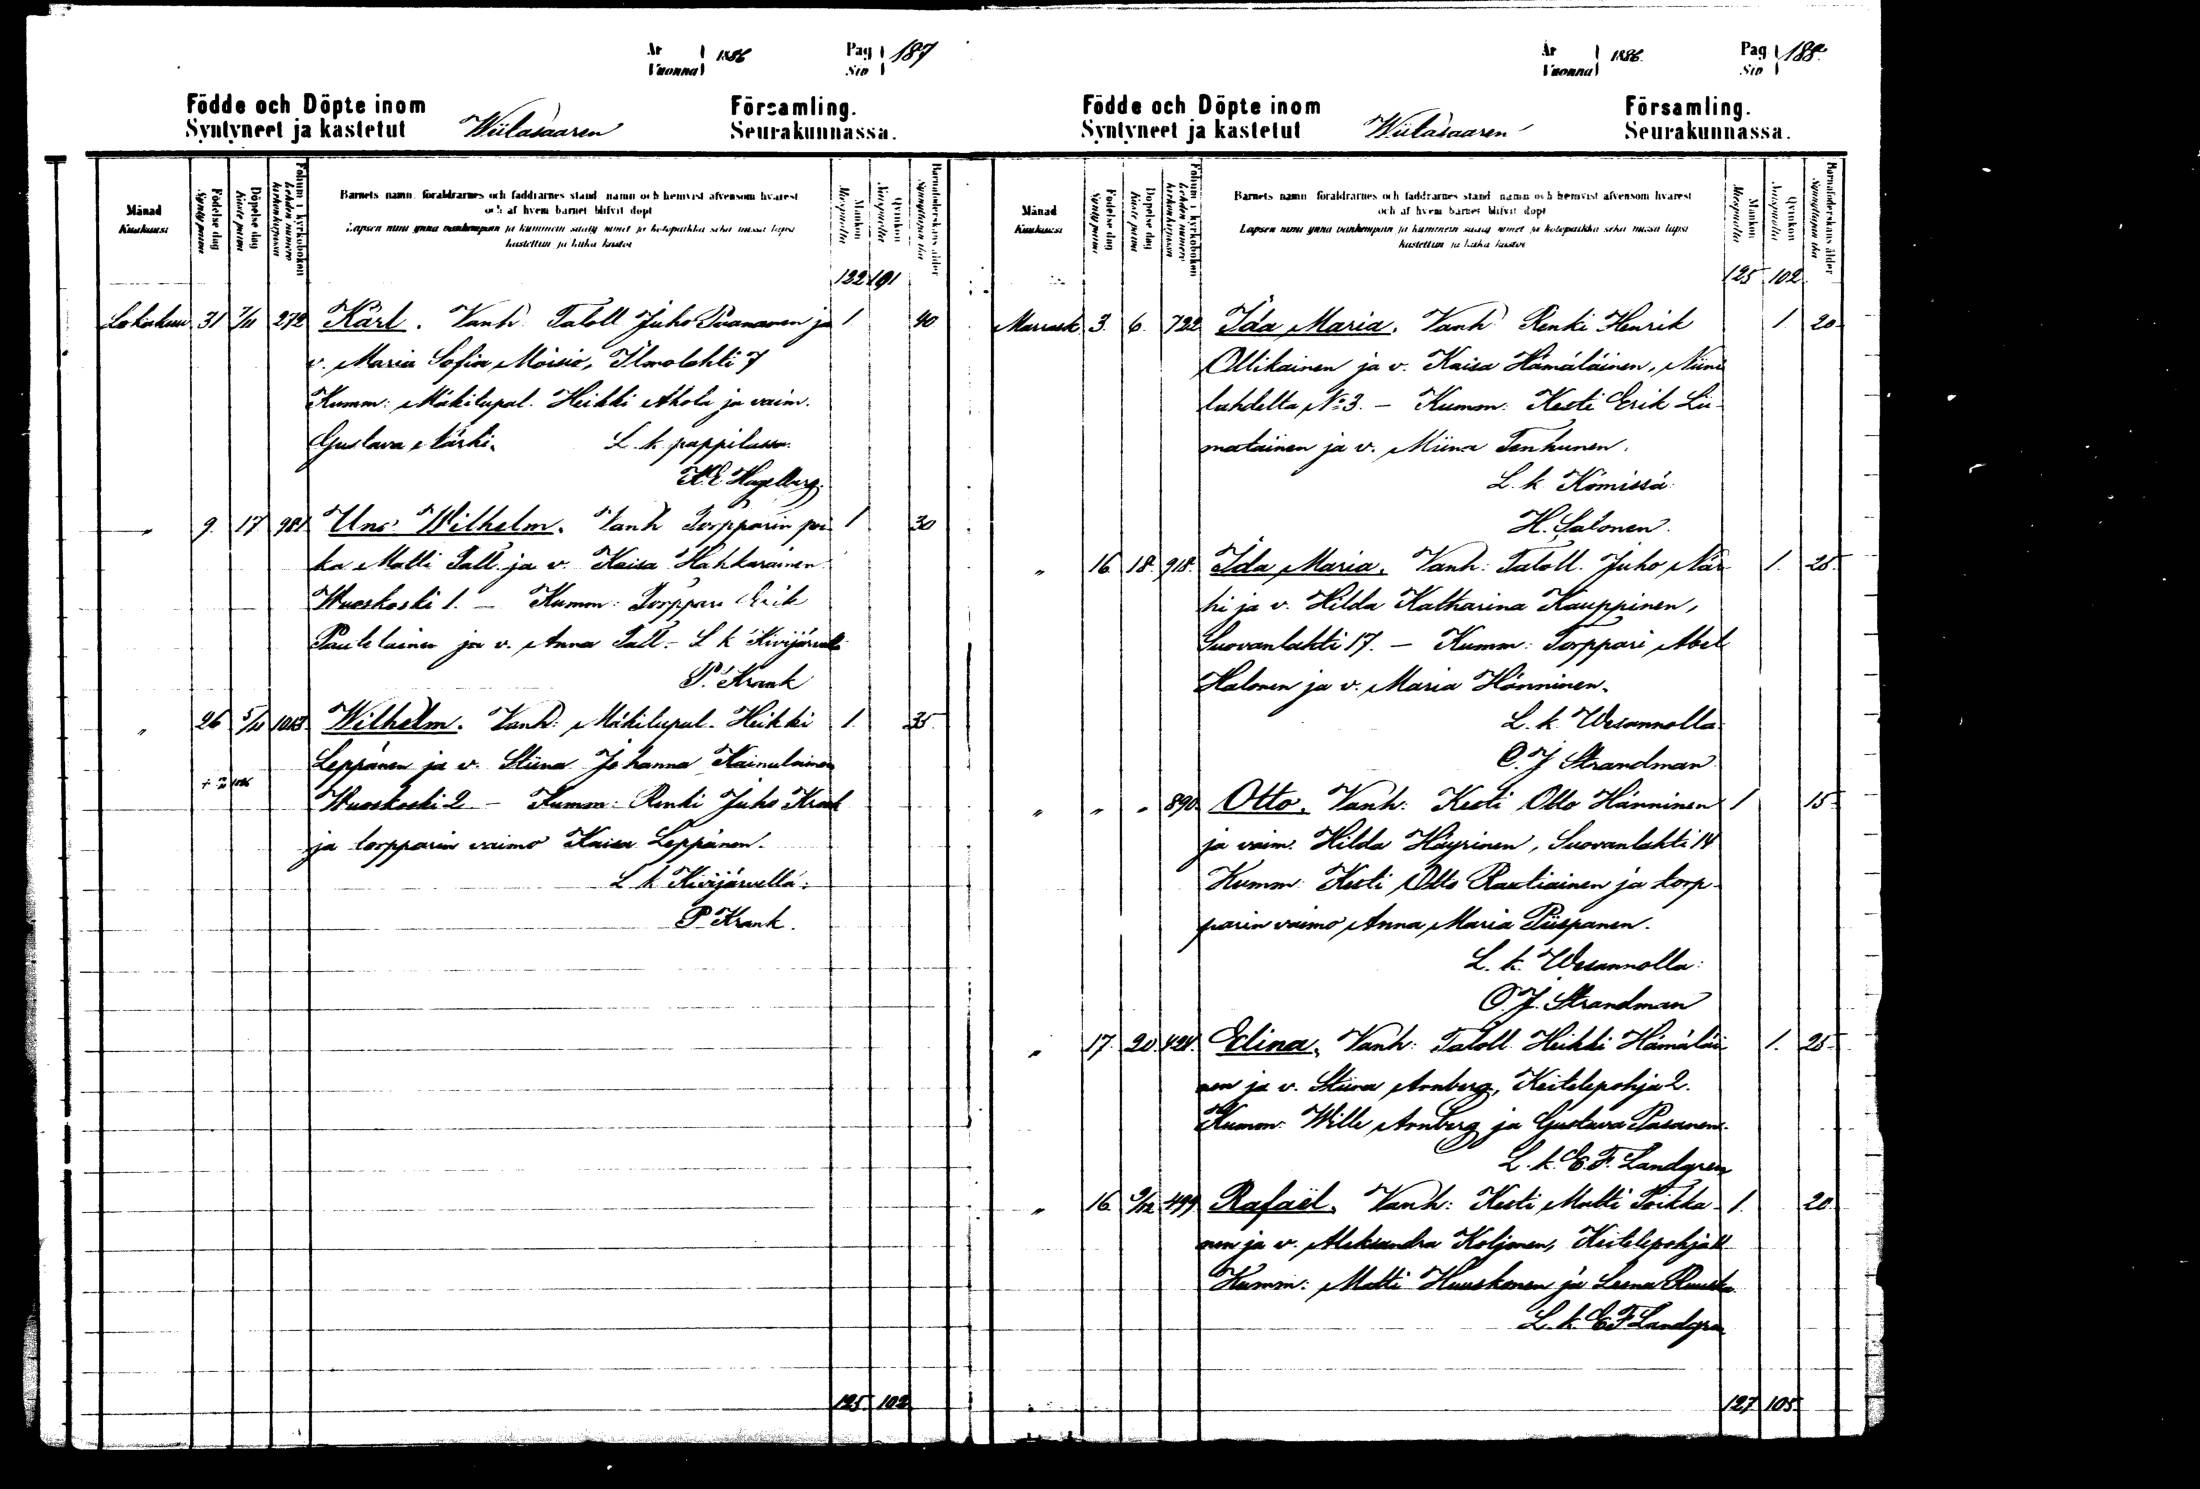 År Vuonna 1886 Pag Siv 187
Födde och Döpte inom Församling.
Syntyneet ja kastetut Wiitasaaren Seurakunnassa.
Månad Kuukausi
Födelse dag Syntypäivä
Döpelse dag Kastepäivä
Folium i kyrkoboken Lehden numero kirkonkirjassa
Barnets namn, föräldrarnes och faddrarnes stånd, namn och hemvist äfvensom hvarest
och af hvem barnet blifvit döpt
Lapsen nimi ynnä vanhempain ja kummein sääty nimet ja kotopaikka sekä missä lapsi
kastettiin ja kuka kastoi
Mankön Miespuolta
Qvinkön Naispuolta
Barnaföderskans ålder Synnyttäjän ikä
122 101
Lokakuu 31 7/11 272 Karl. Vanh. Taloll Juho Piiananen ja 1 40
v. Maria Sofia Moisio, Ilmolahti 7
Kumm: Mäkitupal. Heikki Ahola ja vaim.
Gustava Närhi. L. k. pappilassa.
K. E. Hagelberg.
" 9. 17 981 Uno Wilhelm. Vanh Torpparin poi 1 30
ka Matti Tall ja v. Kaisa Hahkarainen
Wuoskoski 1. – Kumm: Torppari Erik
Pautelainen ja v. Anna Tall. – L k Kivijärvellä
P. Krank
" 26 5/11 1063 Wilhelm. Vanh: Mäkitupal. Heikki 1. 35.
Leppänen ja v. Stiina Johanna Kainulainen
Wuoskoski 2 – Kumm: Renki Juho Krank
ja torpparin vaimo Kaisa Leppänen.
L. k. Kivijärvellä:
P. Krank.
125. 102
År Vuonna 1886. Pag Siv 188.
Födde och Döpte inom Församling.
Syntyneet ja kastetut Wiitasaaren Seurakunnassa.
Månad Kuukausi
Födelse dag Syntypäivä
Döpelse dag Kastepäivä
Folium i kyrkoboken Lehden numero kirkonkirjassa
Barnets namn, föräldrarnes och faddrarnes stånd, namn och hemvist äfvensom hvarest
och af hvem barnet blifvit döpt
Lapsen nimi ynnä vanhempain ja kummein sääty nimet ja kotopaikka sekä missä lapsi
kastettiin ja kuka kastoi
Mankön Miespuolta
Qvinkön Naispuolta
Barnaföderskans ålder Synnyttäjän ikä
125 102.
Marrask. 3. 6. 722 Ida Maria. Vanh Renki Henrik 1 20
Ollikainen ja v. Kaisa Hämäläinen, Niini
lahdelta No 3. – Kumm: Kesti Erik Lii-
matainen ja v. Miina Tenhunen.
L. k. Kömissä
H. Salonen.
" 16. 18. 918. Ida Maria. Vanh: Taloll. Juho När 1. 25.
hi ja v. Hilda Katharina Kauppinen,
Suovanlahti 17. – Kumm: Torppari Abel
Halonen ja v. Maria Hänninen.
L. k. Wesannolla.
O. J Strandman
" " " 890 Otto. Vanh: Kesti Otto Hänninen 1 15
ja vaim. Hilda Häyrinen, Suovanlahti 14
Kumm: Kesti Otto Rautiainen ja torp-
parin vaimo Anna Maria Piispanen.
L. k. Wesannolla:
O. J. Strandman
" 17. 20 424. Elina. Vanh: Taloll. Heikki Hämäläi 1. 25
nen ja v. Stiina Arnberg, Keitelepohja 2.
Kumm: Wille Arnberg ja Gustava Pasanen.
L. k. E. F. Landgren
" 16 9/12 499 Rafaël. Vanh: Kesti Matti Poikka- 1. 20
nen ja v. Aleksandra Koljonen, Keitelepohja
Kumm: Matti Huuskonen ja Leena Ruuska
L. k. E F Landgren
127 105.